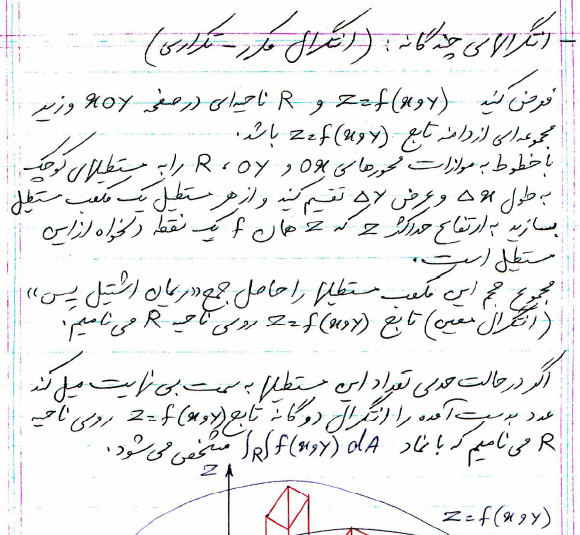 انتگرالهای چندگانه : (انتگرال مکرر - تکراری)
فرض کنید z=f(x,y) و R ناحیه‌ای در صفحه xoy و زیر
مجموعه‌ای از دامنه تابع z=f(x,y) باشد.
با خطوط به موازات محورهای ox و oy ، R را به مستطیلهای کوچک
به طول Δx و عرض Δy تقسیم کنید و از هر مستطیل یک مکعب مستطیل
بسازید به ارتفاع حداکثر z که z همان f یک نقطه دلخواه از این
مستطیل است.
مجموع حجم این مکعب مستطیلها را حاصل جمع «ریمان اشتیل یس»
(انتگرال معین) تابع z=f(x,y) روی ناحیه R می نامیم.
اگر در حالت حدی تعداد این مستطیلها به سمت بی نهایت میل کند
عدد بدست آمده را انتگرال دوگانه تابع z=f(x,y) روی ناحیه
R می نامیم که با نماد ∫R∫f(x,y) dA مشخص می شود.
z
z=f(x,y)